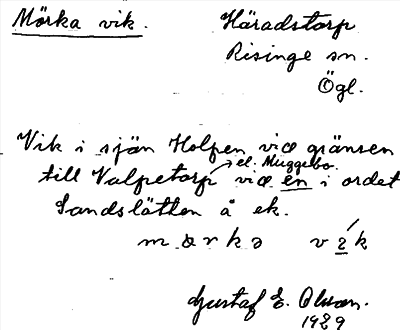 Mörka vik.
Häradstorp
Risinge sn.
Ögl.
Vik i sjön Holpen vid gränsen
el. Muggebo
till Valpetorp vid en i ordet
Sandslätten å ek.
Gustaf E. Olsson.
1929